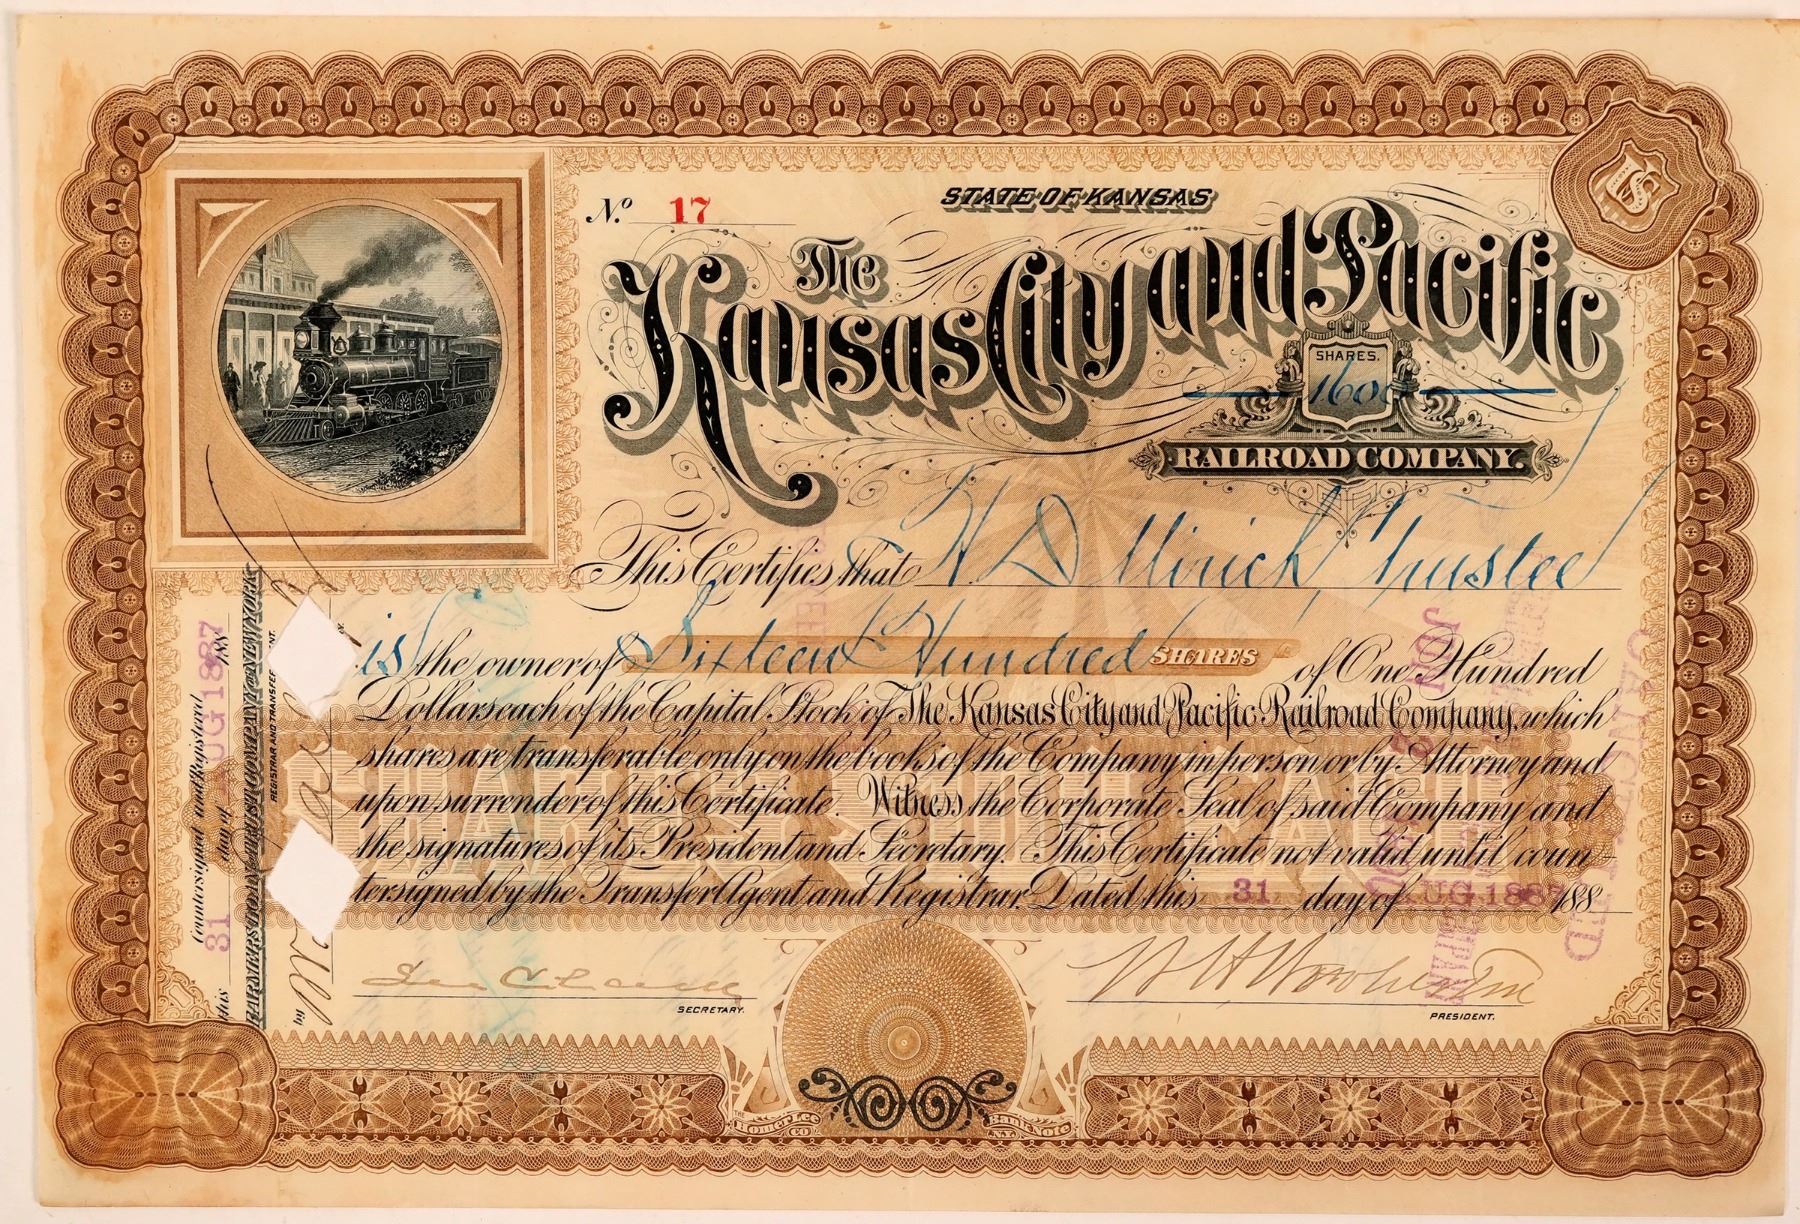 No. 17
STATE OF KANSAS
The
Kansas City and Pacific
SHARES.
1600
RAILROAD COMPANY.
This Certifies that H D Mirick Trustee
is the owner of Sixteen Hundred SHARES of One Hundred
Dollars each of the Capital Stock of The Kansas City and Pacific Railroad Company, which
shares are transferable only on the books of the Company in person or by Attorney and
upon surrender of this Certificate. Witness the Corporate Seal of said Company and
the signatures of its President and Secretary. This Certificate not valid until coun-
tersigned by the Transfer Agent and Registrar. Dated this 31 day of AUG 1887 188
SECRETARY.
PRESIDENT.
Countersigned and Registered
this 31 day of AUG 1887 188
FARMERS LOAN AND TRUST COMPANY OF NEW YORK
REGISTRAR AND TRANSFER AGENT.
by
SHARES $100 EACH
CANCELLED
THE Homer Lee Bank Note CO. N.Y.